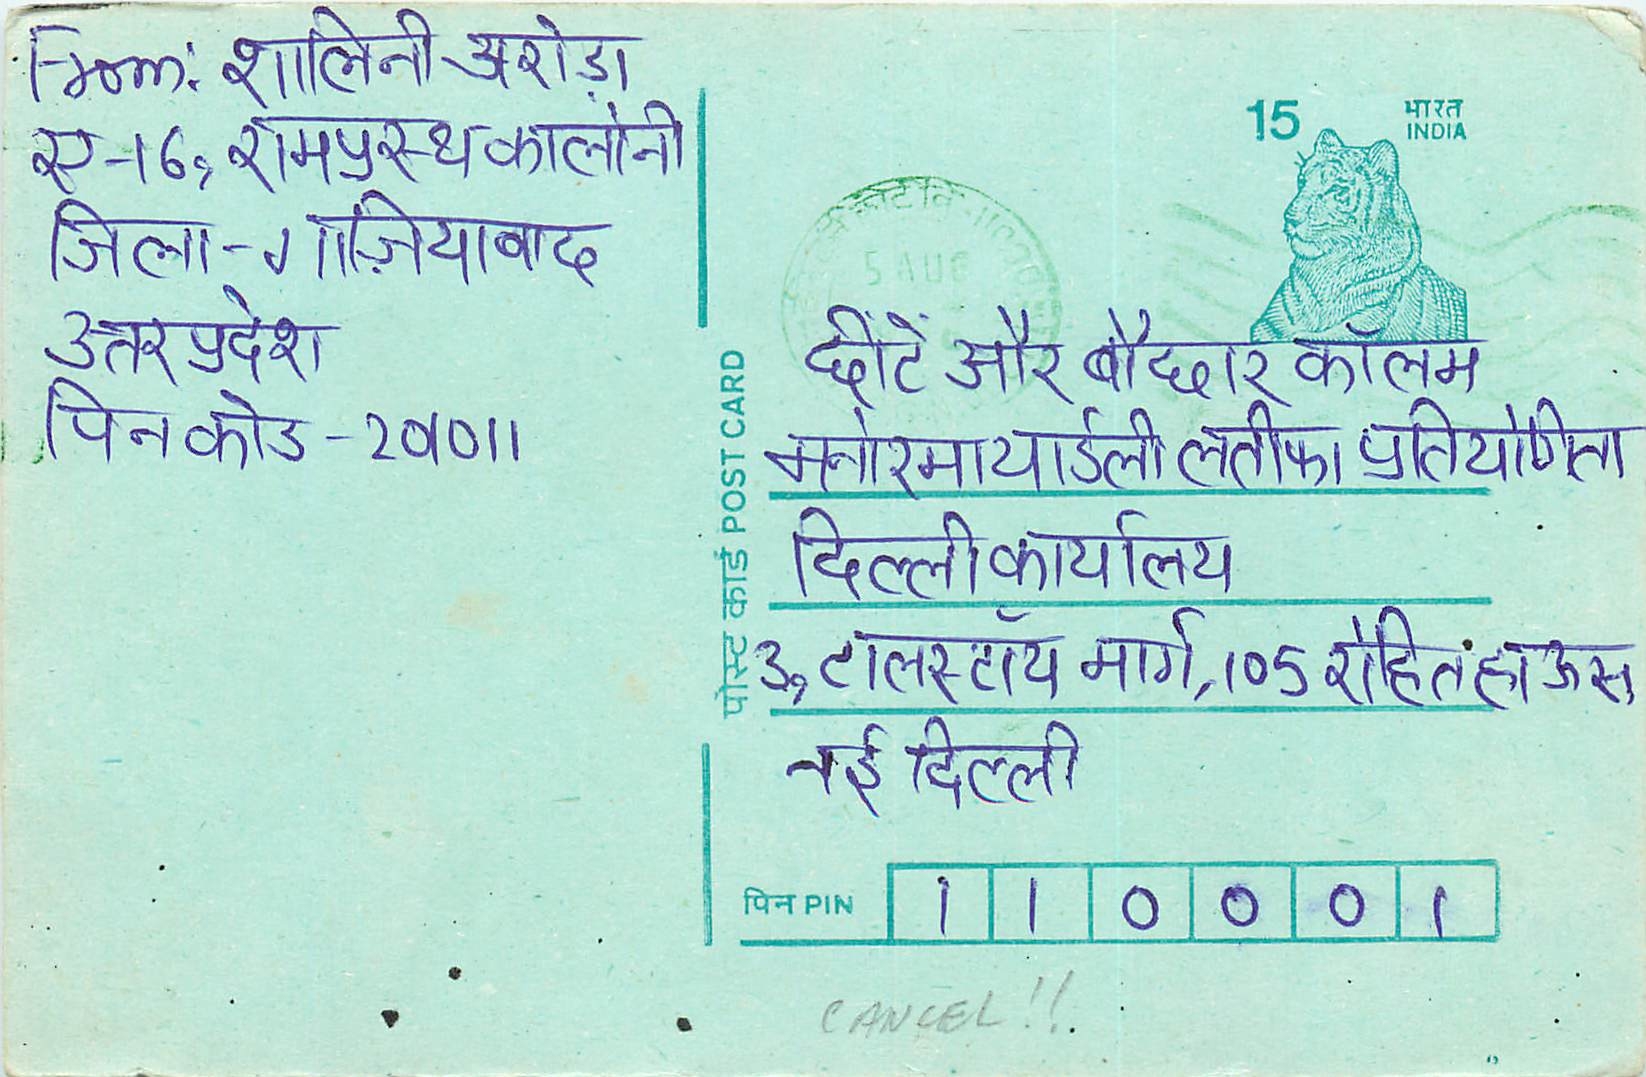 From: शालिनी अरोड़ा
ए-16, रामप्रस्थ कालोनी
जिला-गाज़ियाबाद
उत्तर प्रदेश
पिन कोड-201011
15 भारत
INDIA
5 AUG
पोस्ट कार्ड POST CARD
छींटें और बौछार कॉलम
मनोरमा यार्डली लतीफा प्रतियोगिता
दिल्ली कार्यालय
3, टालस्टॉय मार्ग, 105 रोहित हाऊस,
नई दिल्ली
पिन PIN 110001
CANCEL!!